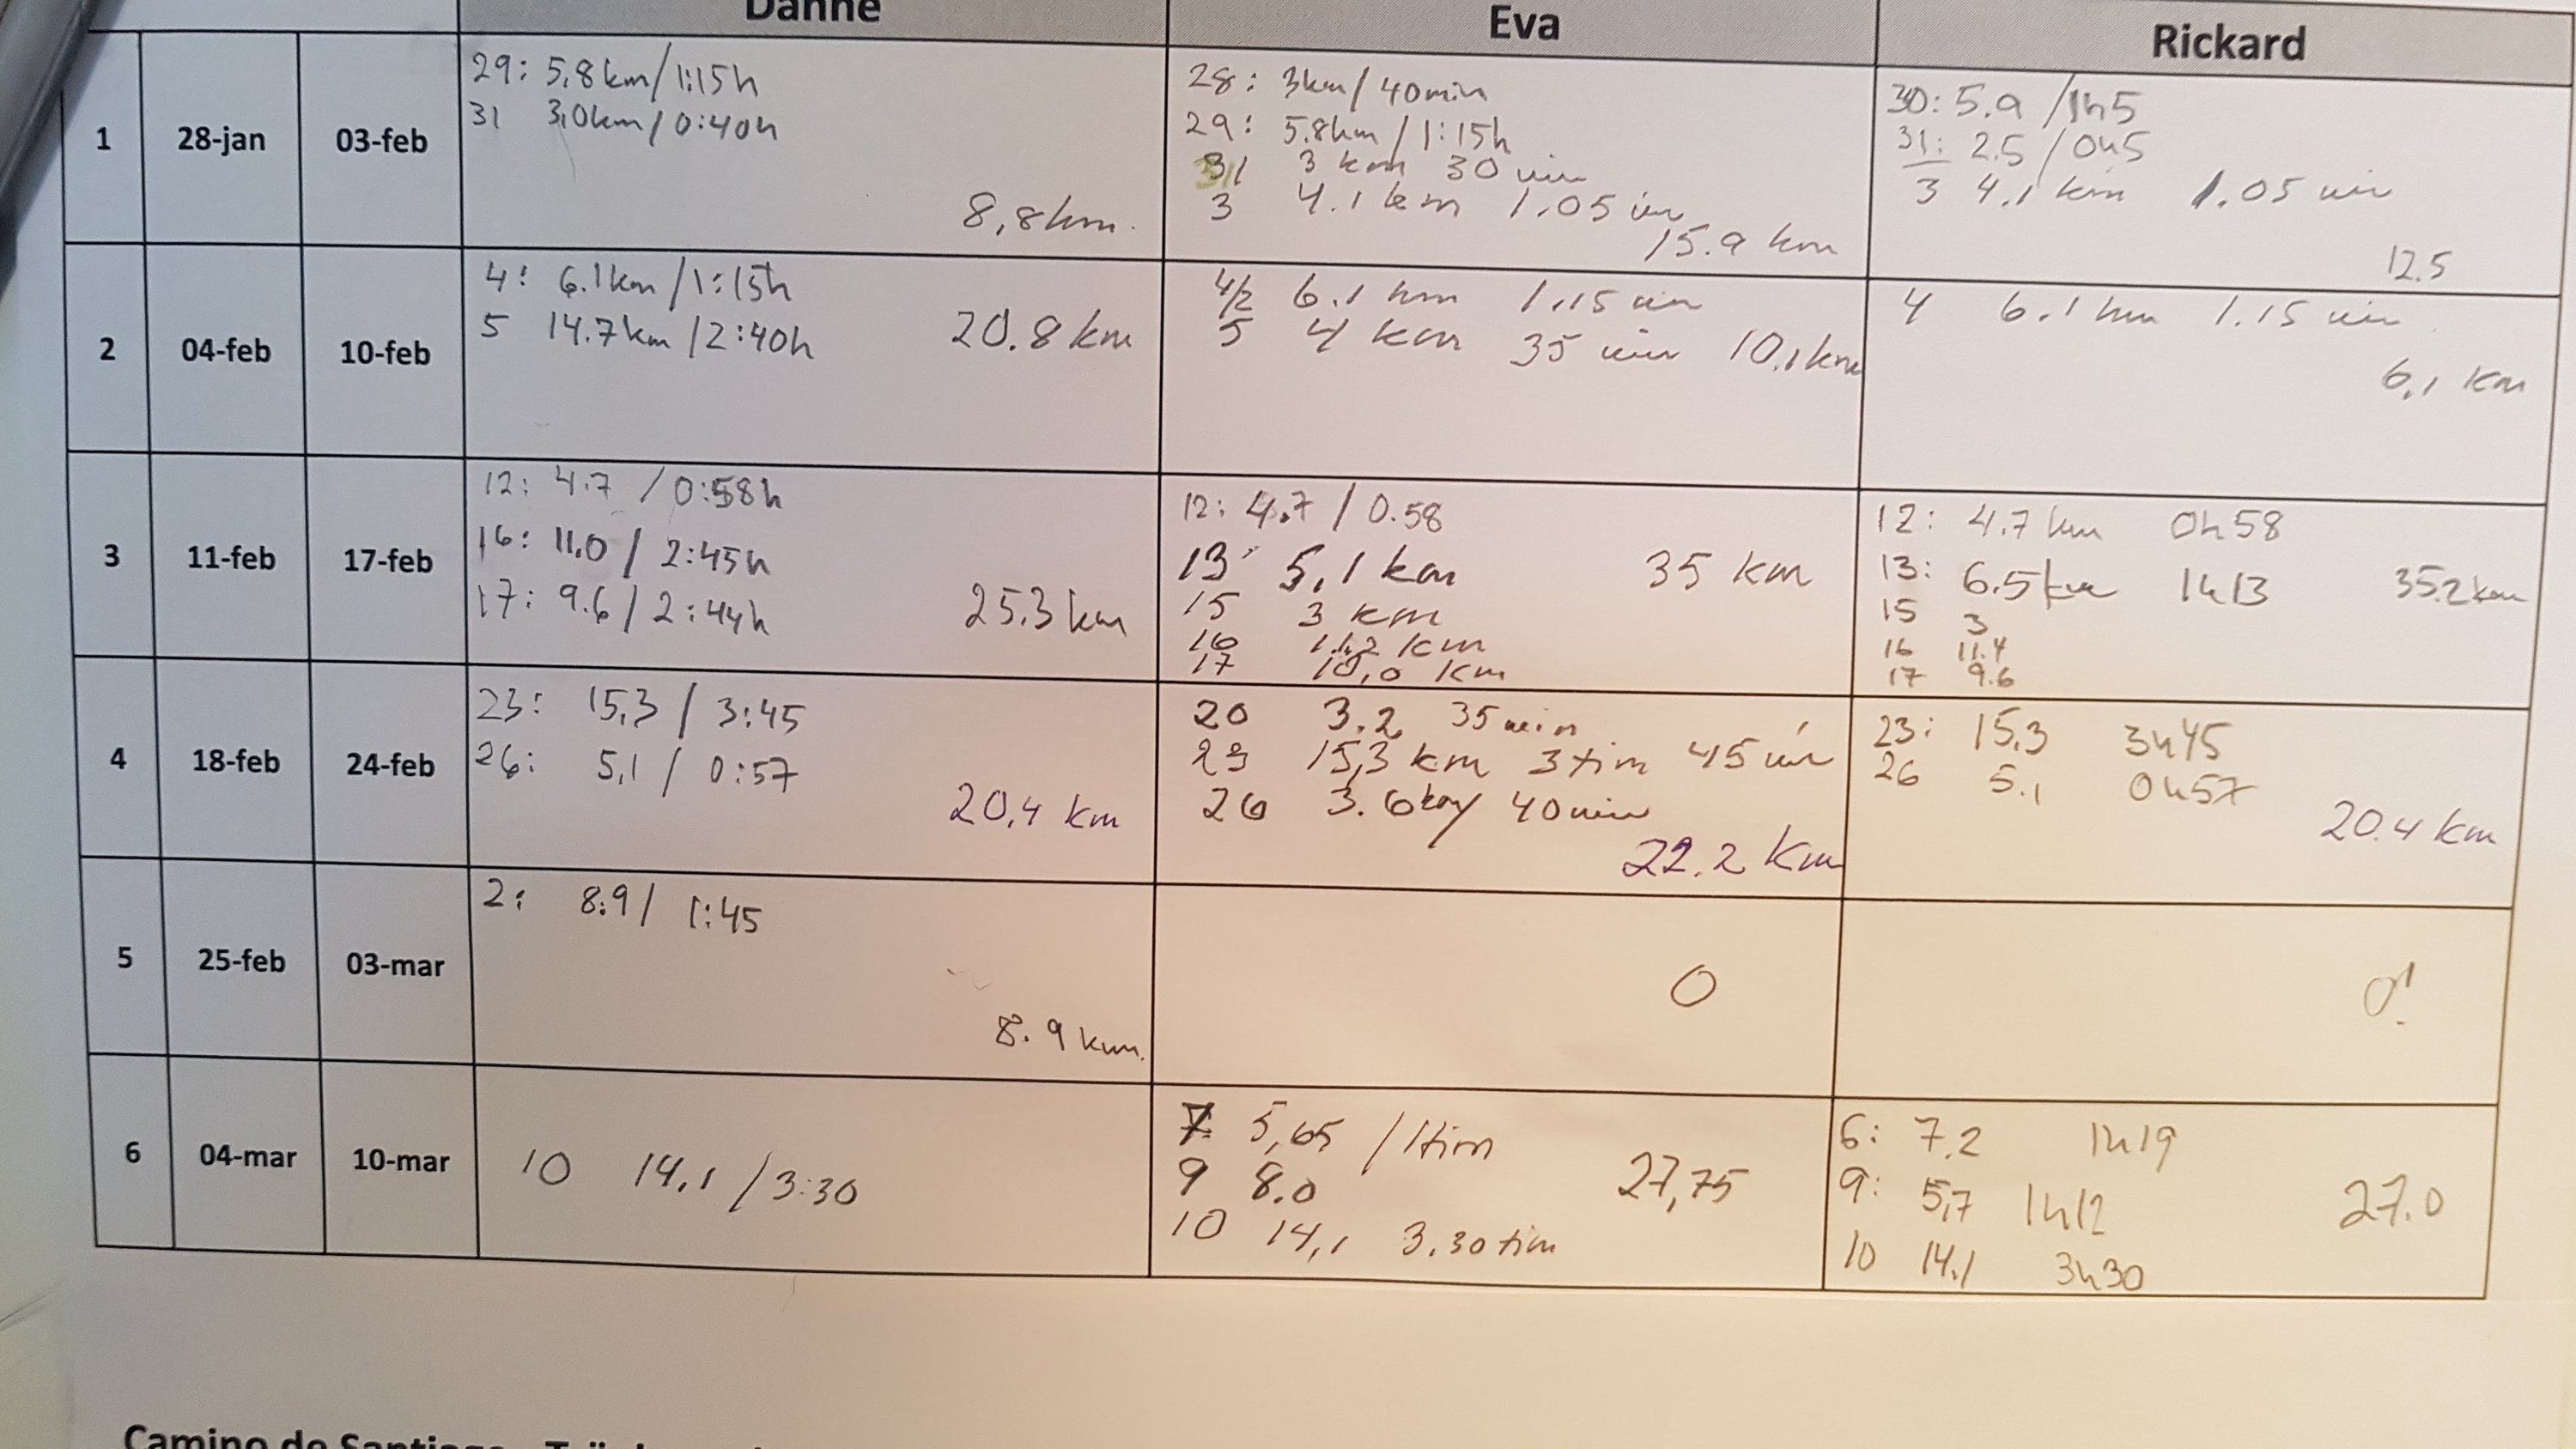 Danne Eva Rickard
1 28-jan 03-feb
29: 5,8km/1:15h
31 3,0km/0:40h
8,8km.
28: 3km/40min
29: 5.8km/1:15h
31 3 km 30 min
3 4.1 km 1.05 min
15.9 km
30: 5.9 /1h5
31: 2.5 /0h5
3 4,1 km 1.05 min
12.5
2 04-feb 10-feb
4: 6.1km/1:15h
5 14.7km/2:40h 20.8 km
4/2 6.1 km 1.15 min
5 4 km 35 min 10,1km
4 6.1 km 1.15 min
6,1 km
3 11-feb 17-feb
12: 4.7 /0:58h
16: 11,0 / 2:45h
17: 9.6/2:44h 25,3 km
12: 4.7 / 0.58
13 5,1 km 35 km
15 3 km
16 11,2 km
17 10,0 km
12: 4.7 km 0h58
13: 6.5km 1h13 35.2km
15 3
16 11.4
17 9.6
4 18-feb 24-feb
23: 15,3 / 3:45
26: 5,1 / 0:57
20,4 km
20 3.2 35min
23 15,3 km 3tim 45 min
26 3.6km/ 40min
22.2 km
23: 15,3 3h45
26 5.1 0h57
20.4 km
5 25-feb 03-mar
2: 8.9/ 1:45
8.9 km.
0
0!
6 04-mar 10-mar
10 14,1 /3:30
7 5,65 /1tim
9 8.0 27,75
10 14,1 3.30tim
6: 7.2 1h19
9: 5,7 1h12 27.0
10 14.1 3h30
Camino de Santiago -